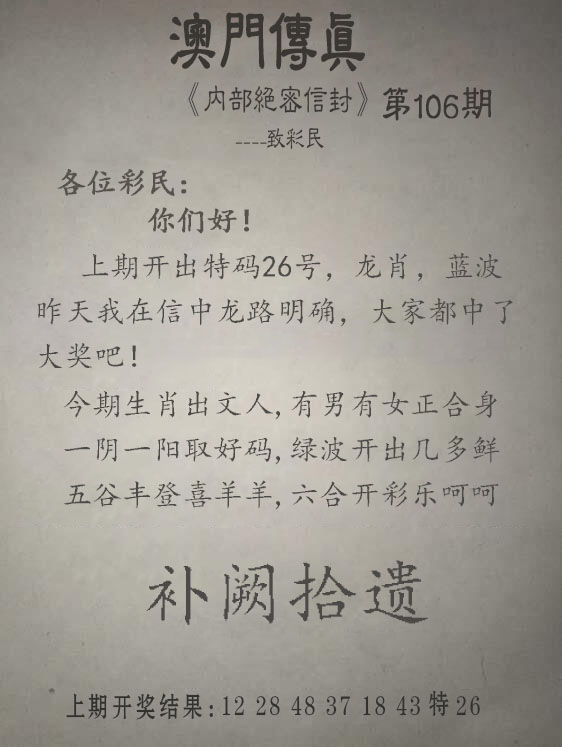 澳門傳真
《内部絕密信封》第106期
----致彩民
各位彩民：
你们好！
上期开出特码26号，龙肖，蓝波
昨天我在信中龙路明确，大家都中了
大奖吧！
今期生肖出文人，有男有女正合身
一阴一阳取好码，绿波开出几多鲜
五谷丰登喜羊羊，六合开彩乐呵呵
补阙拾遗
上期开奖结果：12 28 48 37 18 43 特 26